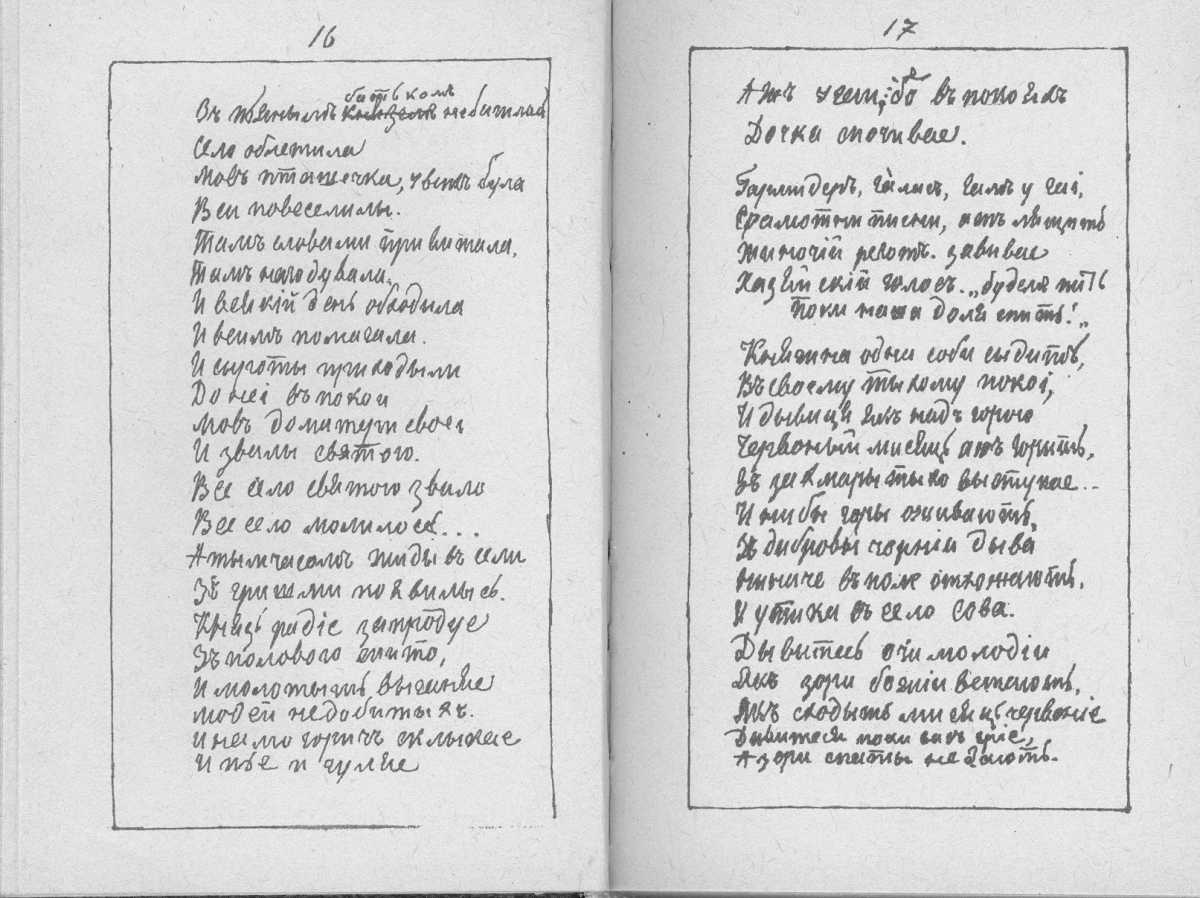 16
батькомъ
Зъ пьянымъ княземъ небачилась
Село облетила
Мовъ пташечка, у всихъ була
Всих повеселила.
Тамъ словами привитала,
Тамъ нагодувала.
И всякій день обходила
И всимъ помагала.
И сыроты приходыли
До неі въ покои
Мовъ до матери своеі
И звалы святого.
Все село святого звало
Все село молилось...
А тымчасомъ жиды въ сели
Зъ гришми появились.
Князь радіе запродуе
Зъ полового жито,
И молотыть выганяе
Людей недобитыхъ.
И на могоричъ склыкае
И пье и гуляе
17
Ажъ у гаи, бо въ покояхъ
Дочка спочивае.
Гармидеръ, галасъ, гамъ у гаі,
Срамотни писни, ажъ лящить
Жиночій реготъ. завивае
Хазяйскій голосъ. „будемъ пить
Поки наша доля спить!„
Княжна одна соби сыдить,
Въ своему тыхому покоі,
И дывиця якъ надъ горою
Червоный мисяць ажъ горить,
Зъ за хмары тыхо выступае..
И ниби горы оживають,
Зъ дибровы чорніи дыва
Ниначе въ поле отхожають,
И утика въ село сова.
Дывитесь очи молодіи
Якъ зори божіи встають,
Якъ сходыть мисяць червоніе
Дивитеся поки васъ гріе,
А зори спаты не дають.